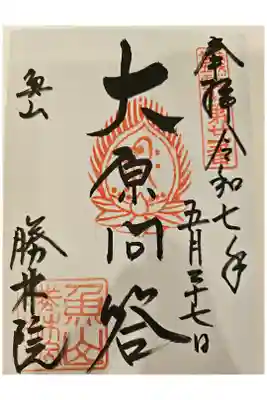 奉拝 令和七年
五月二十七日
大原問答
魚山
勝林院
魚山